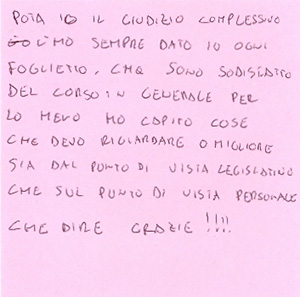 POTA IO IL GIUDIZIO COMPLESSIVO
L'HO SEMPRE DATO IO OGNI
FOGLIETTO, CMQ SONO SODISFATTO
DEL CORSO IN GENERALE PER
LO MENO HO CAPITO COSE
CHE DEVO RIGUARDARE O MIGLIORE
SIA DAL PUNTO DI VISTA LEGISLATIVO
CHE SUL PUNTO DI VISTA PERSONALE
CHE DIRE GRAZIE !!!!